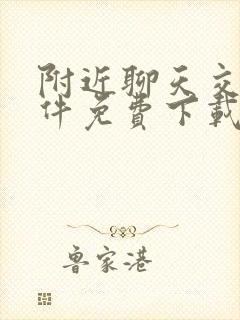 附近聊天交
件免费下载
鲁家港